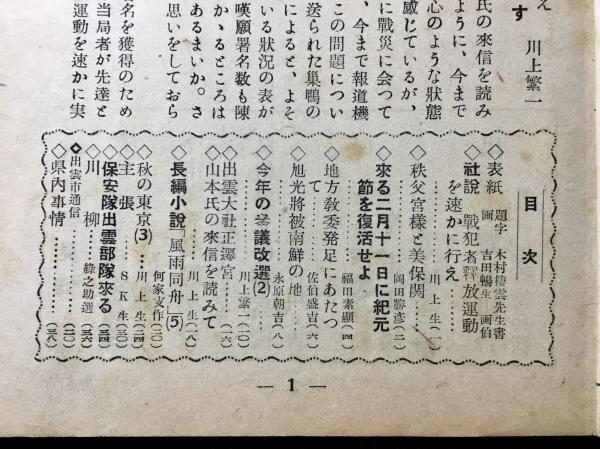 え
す　川上繁一
氏の來信を読み
ように、今まで
心のような狀態
感じているが、
に戰災に会つて
、今まで報道機
この問題につい
送られた巣鴨の
によると、よそ
いる狀況の表が
嘆願署名数も陳
かゝるところは
あるまいか。さ
思いをしておら
名を獲得のため
当局者が先達と
運動を速かに実
目次
◇表紙　題字　木村徳雲先生書
画　吉田暢生画伯
◇社說　戰犯者釋放運動
を速かに行え
……川上生(一)
◇秩父宮様と美保関……
……岡田勝彦(二)
◇來る二月十一日に紀元
節を復活せよ
……福田素顯(四)
◇地方敎委発足にあたつ
て……佐伯盛吉(六)
◇旭光將被南鮮の地……
……永原朝吉(八)
◇今年の參議改選(2)……
……川上繁一(一〇)
◇出雲大社正遷宮……(一六)
◇山本氏の來信を読みて
……川上生(一八)
◇長編小說「風雨同舟」(5)
何家支作(二〇)
◇秋の東京(3)…川上生(二四)
◇主張……ＳＫ生(三〇)
◇保安隊出雲部隊來る(三四)
◇川柳……綠之助選
◇出雲市通信……(三二)
◇県内事情……(三八)
— 1 —